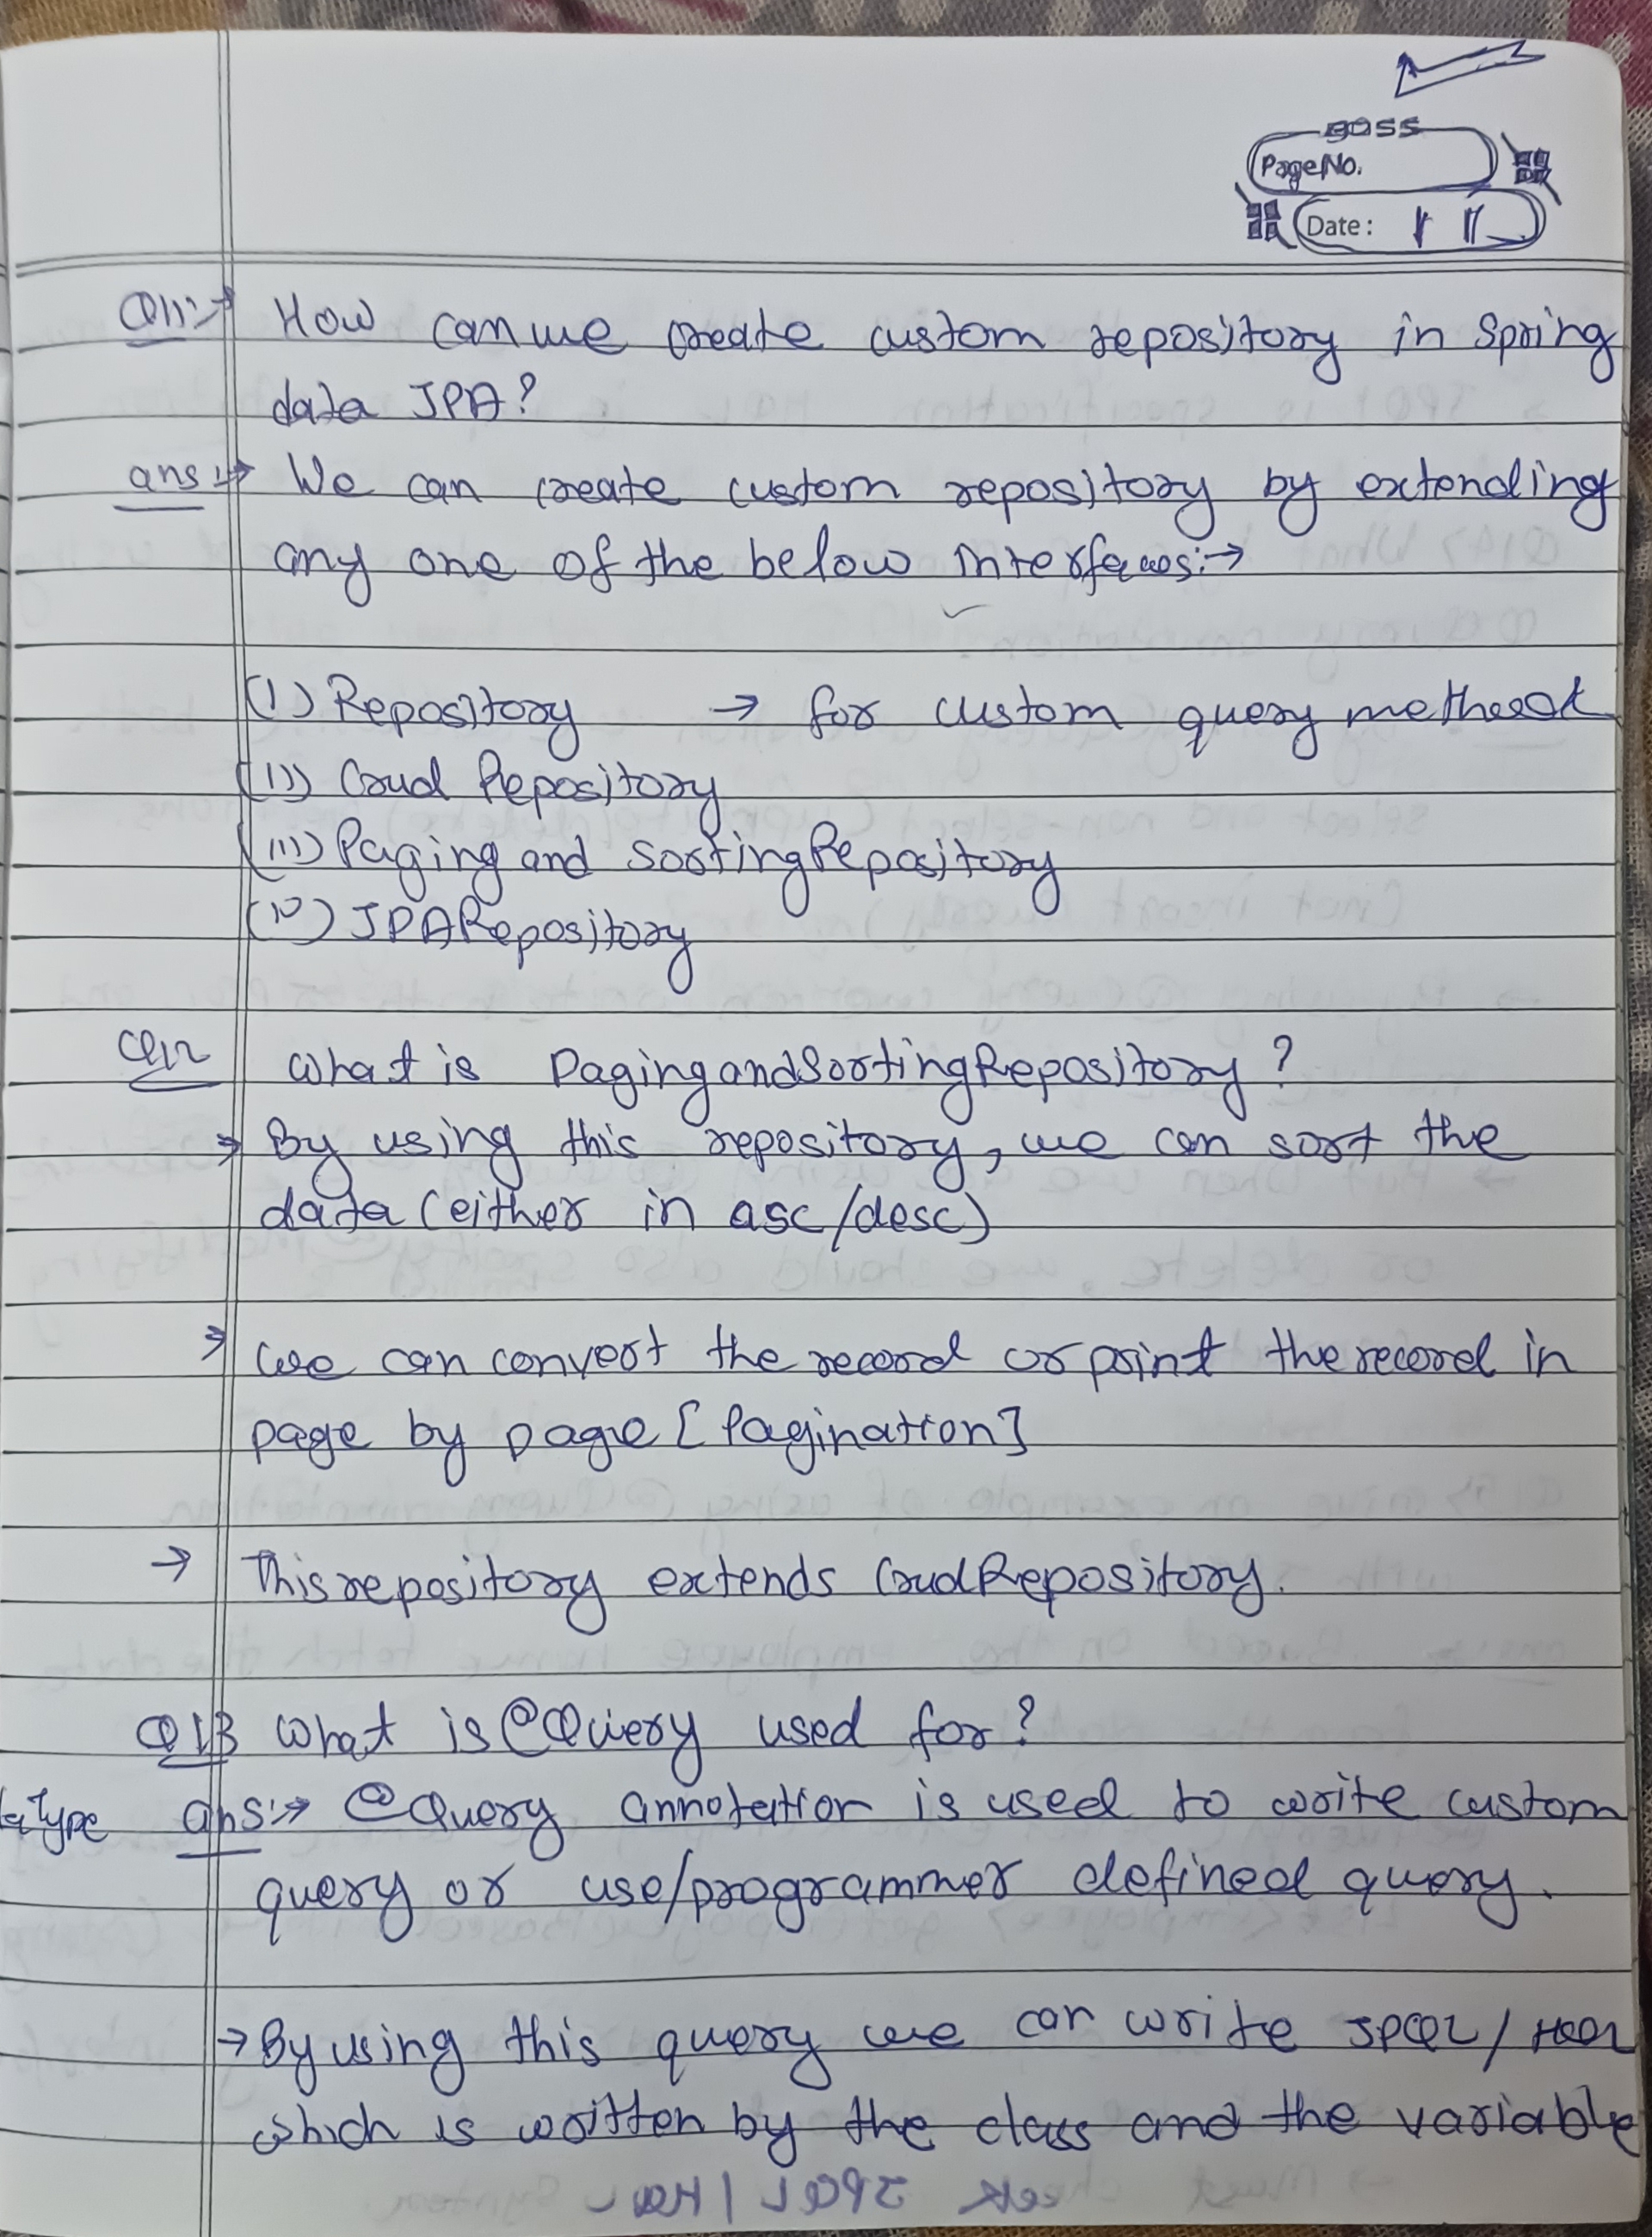 BOSS
Page No.
Date:
Q11:→ How can we create custom repository in Spring
data JPA?
ans:→ We can create custom repository by extending
any one of the below interfaces:→
(I) Repository → for custom query method
(II) Crud Repository
(III) Paging and SortingRepository
(IV) JPARepository
Q12 What is PagingandSortingRepository?
→ By using this repository, we can sort the
data (either in asc/desc)
→ We can convert the record or print the record in
page by page [Pagination]
→ This repository extends CrudRepository.
Q13 What is @Query used for?
Type ans:→ @Query annotation is used to write custom
query or use/programmer defined query.
→ By using this query we can write JPQL/HQL
which is written by the class and the variable